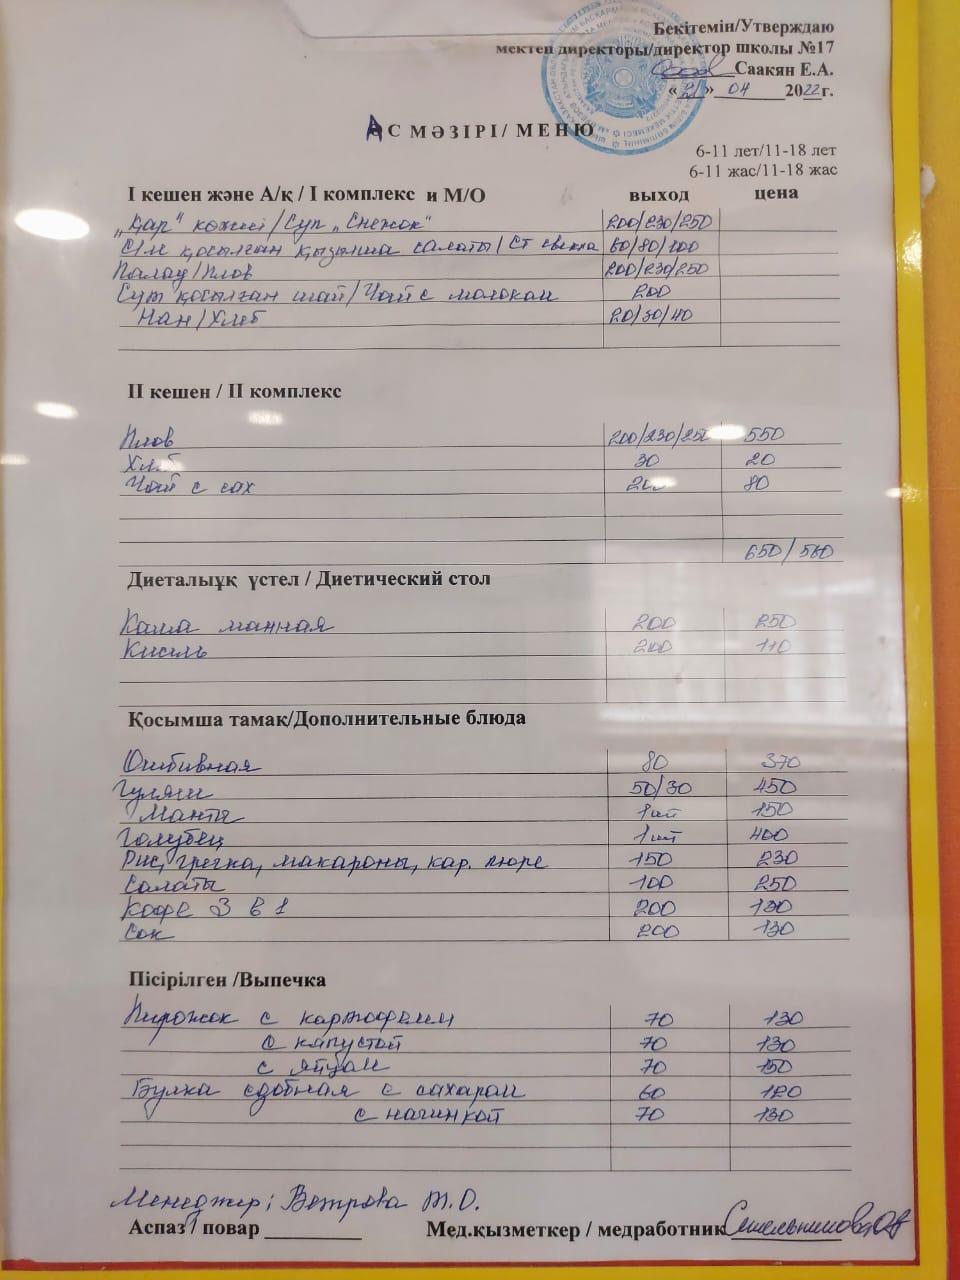 Бекітемін/Утверждаю
мектеп директоры/директор школы №17
Саакян Е.А.
«21» 04 2022г.
АС МӘЗІРІ/ МЕНЮ
6-11 лет/11-18 лет
6-11 жас/11-18 жас
I кешен және А/қ / I комплекс и М/О выход цена
„Қар" көжесі/Суп „Снежок" 200/230/250
С/м қосылған қызылша салаты/Ст свекла 60/80/100
Палау/Плов 200/230/250
Сүт қосылған шай/Чай с молоком 200
Нан/Хлеб 20/30/40
II кешен / II комплекс
Плов 200/230/250 550
Хлеб 30 20
Чай с сах 80
650/560
Диеталыұқ үстел / Диетический стол
Каша манная 200 250
Кисель 200 110
Қосымша тамақ/Дополнительные блюда
Отбивная 80 370
Гуляш 50/30 450
Манты 1шт 150
Голубец 1шт 400
Рис, гречка, макароны, кар. пюре 150 230
Салаты 100 250
Кофе 3 в 1 200 130
Сок 200 130
Пісірілген /Выпечка
Пирожок с картофелем 70 130
с капустой 70 130
с яйцом 70 150
Булка сдобная с сахаром 60 120
с начинкой 70 130
Менеджер: Ветрова Т.О.
Аспаз / повар Мед.қызметкер / медработник